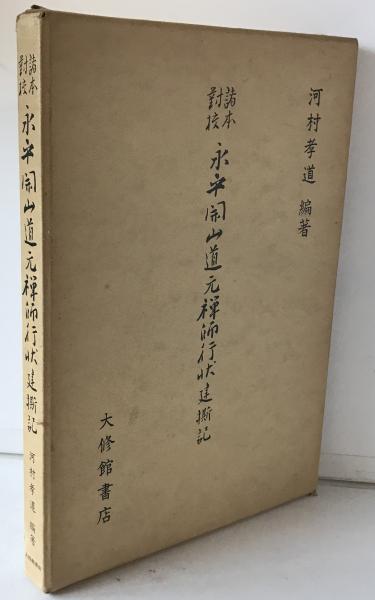 河村孝道 編著
諸本
對校
永平開山道元禅師行状 建撕記
大修館書店
諸本
對校
永平開山道元禅師行状 建撕記
河村孝道 編著